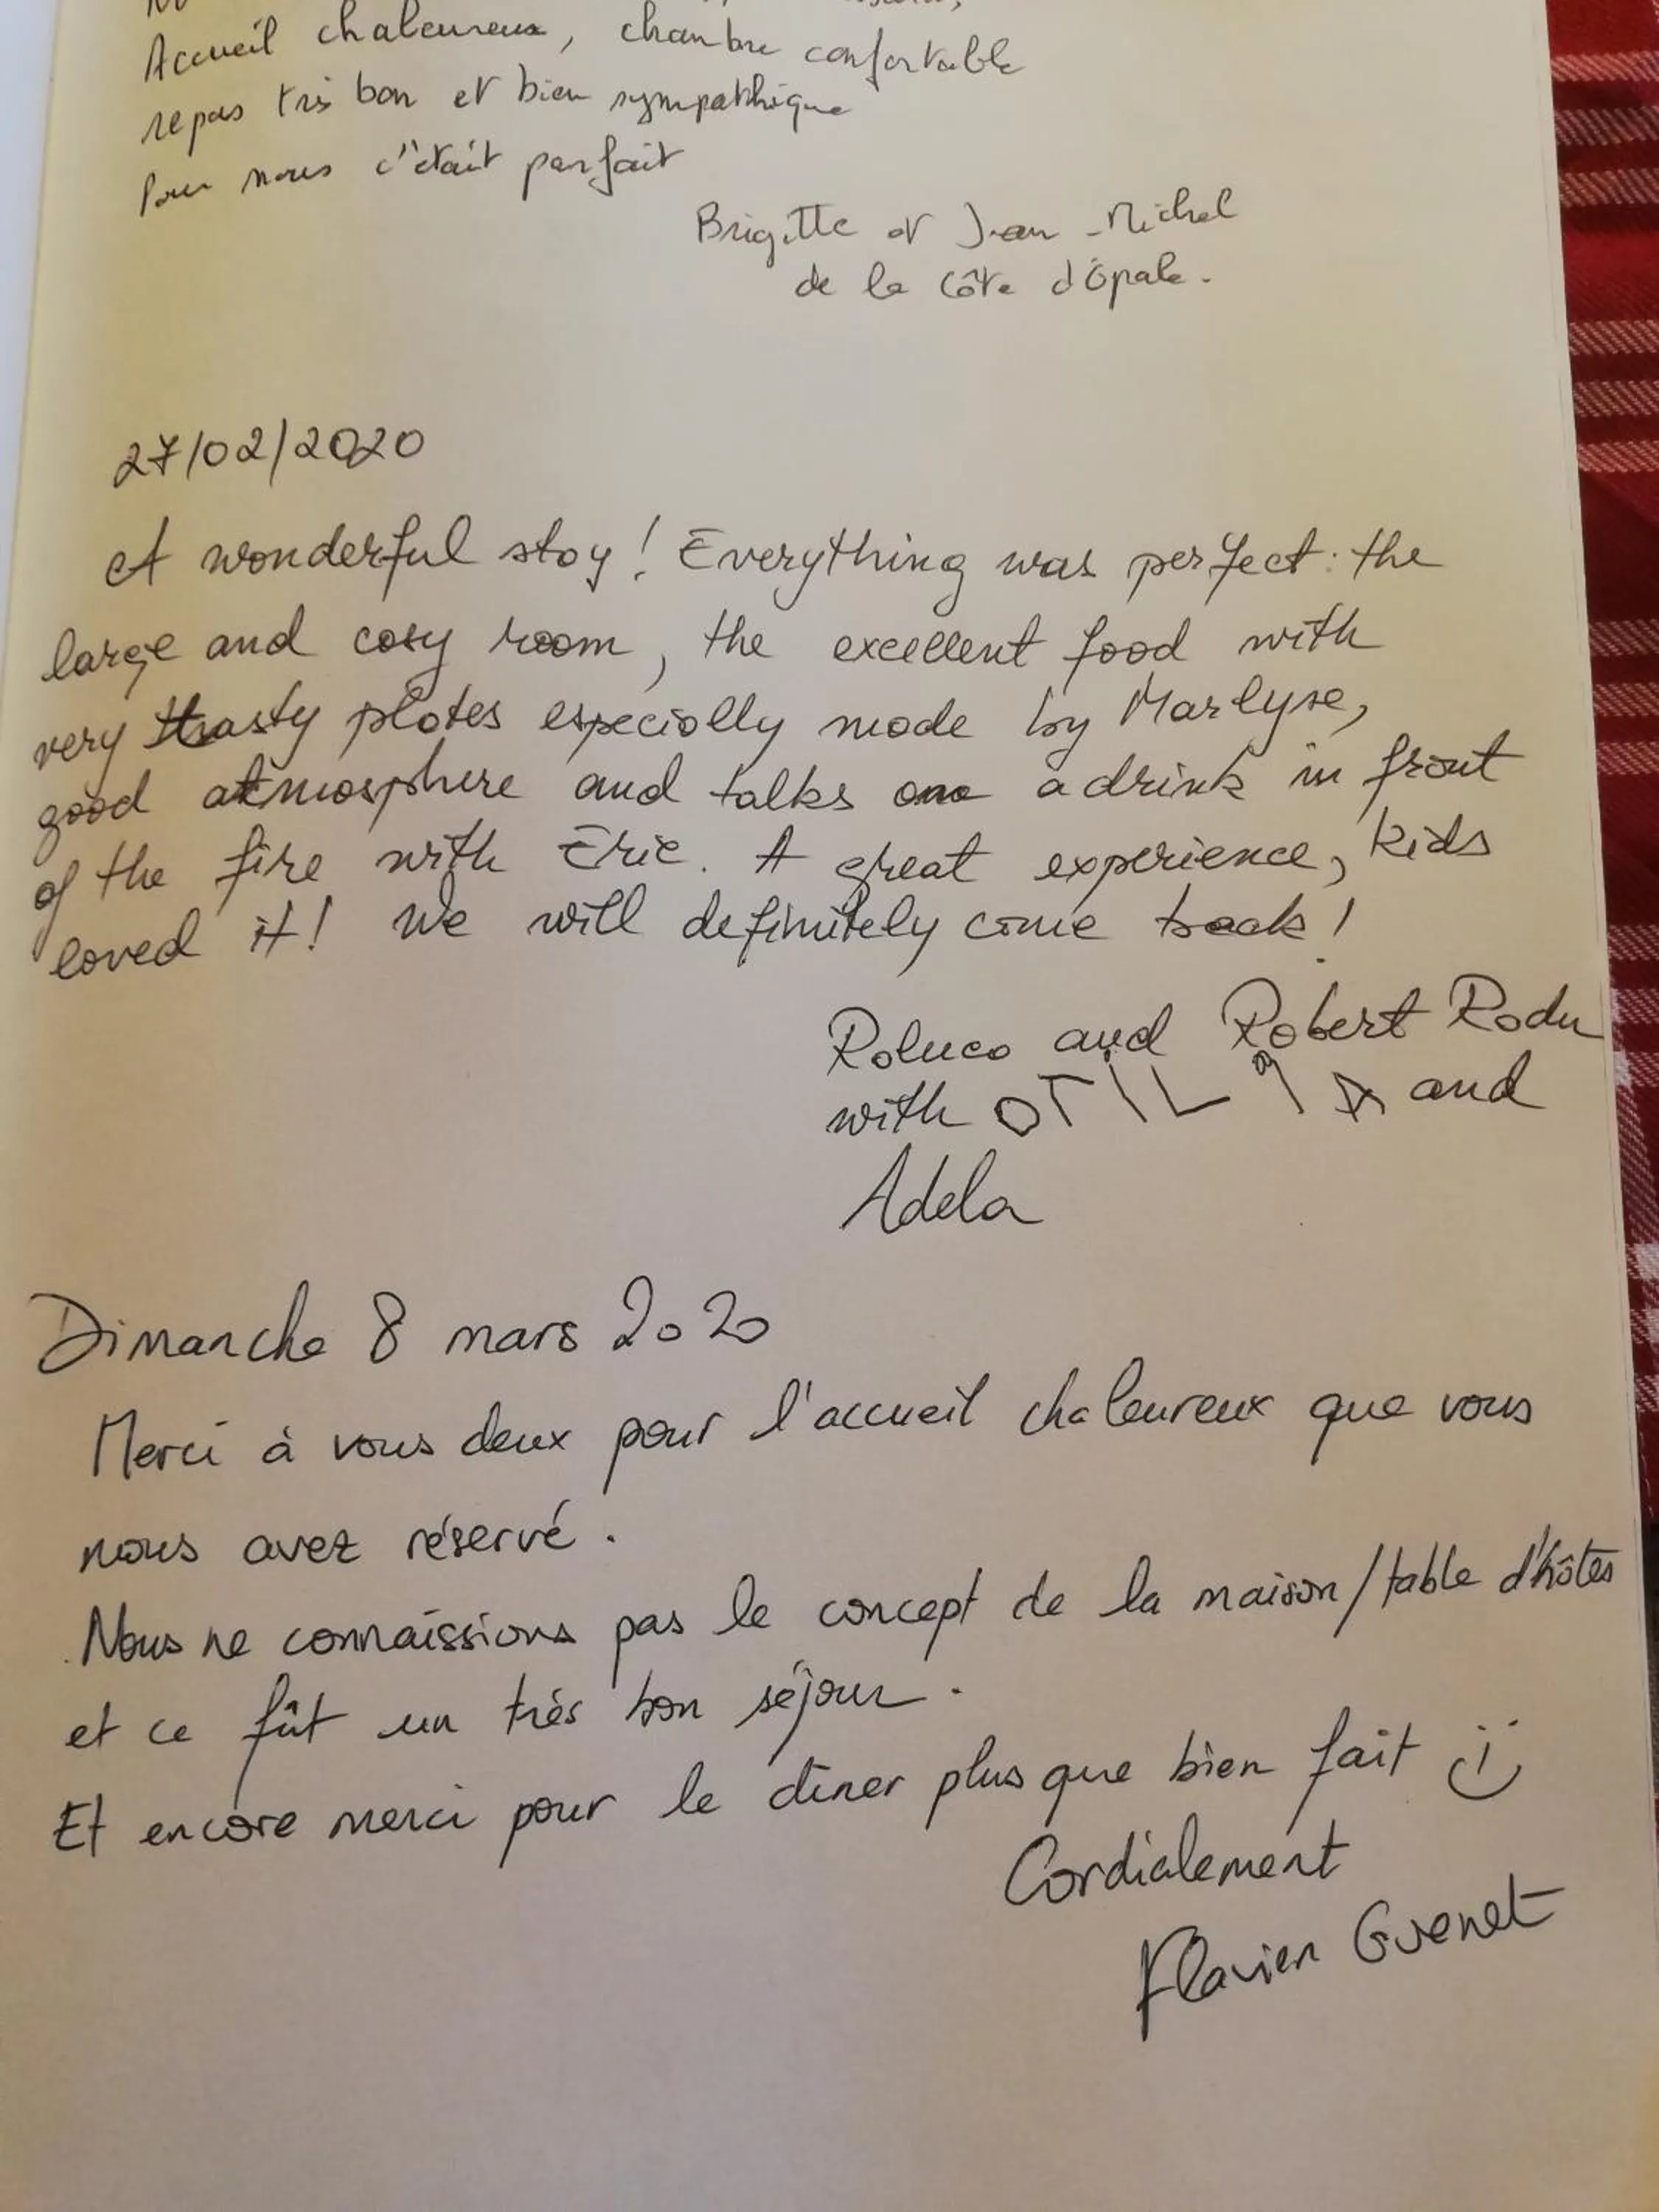 Accueil chaleureux, chambre confortable
repas très bon et bien sympathique
Pour nous c'était parfait
Brigitte et Jean-Michel
de la Côte d'Opale.
27/02/2020
A wonderful stay! Everything was perfect: the
large and cosy room, the excellent food with
very tasty plates especially made by Marlyse,
good atmosphere and talks on a drink in front
of the fire with Eric. A great experience, kids
loved it! We will definitely come back!
and Robert Radu
with OTILIA and
Adela
Dimanche 8 mars 2020
Merci à vous deux pour l'accueil chaleureux que vous
nous avez réservé.
Nous ne connaissions pas le concept de la maison/table d'hôtes
et ce fût un très bon séjour.
Et encore merci pour le dîner plus que bien fait :)
Cordialement
Flavien Guenet